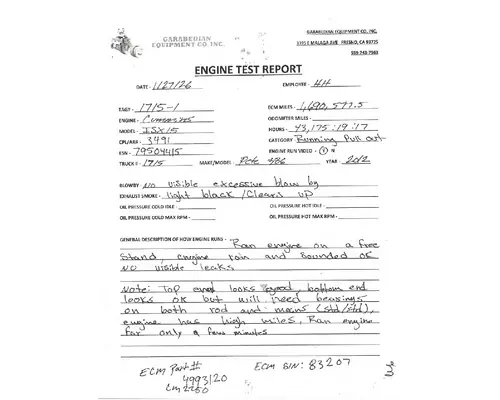 GARABEDIAN
EQUIPMENT CO. INC.
GARABEDIAN EQUIPMENT CO, INC.
3395 E MALAGA AVE FRESNO, CA 93725
ENGINE TEST REPORT
DATE - 1/27/26
EMPLOYEE - HH
TAG# - 1715-1
ECM MILES - 1,690,577.5
ENGINE - Cummins
ODOMETER MILES -
MODEL - ISX15
HOURS - 43,175:19:17
CPL/AR# - 3491
CATEGORY - Running Pull out
ESN - 79504415
ENGINE RUN VIDEO - Y N
TRUCK # - 1715
MAKE/MODEL - Pete 386
YEAR - 2012
BLOWBY - no visible excessive blow by
EXHAUST SMOKE - light black / Clears up
OIL PRESSURE COLD IDLE -
OIL PRESSURE HOT IDLE -
OIL PRESSURE COLD MAX RPM -
OIL PRESSURE HOT MAX RPM -
GENERAL DESCRIPTION OF HOW ENGINE RUNS - Ran engine on a free
stand, engine ran and sounded ok
no visible leaks
Note: Top end looks good, bottom end
looks ok but will need bearings
on both rod and mains (std/std),
engine has high miles, Ran engine
for only a few minutes
ECM Part#
4993120
cm2250
ECM S/N: 83207